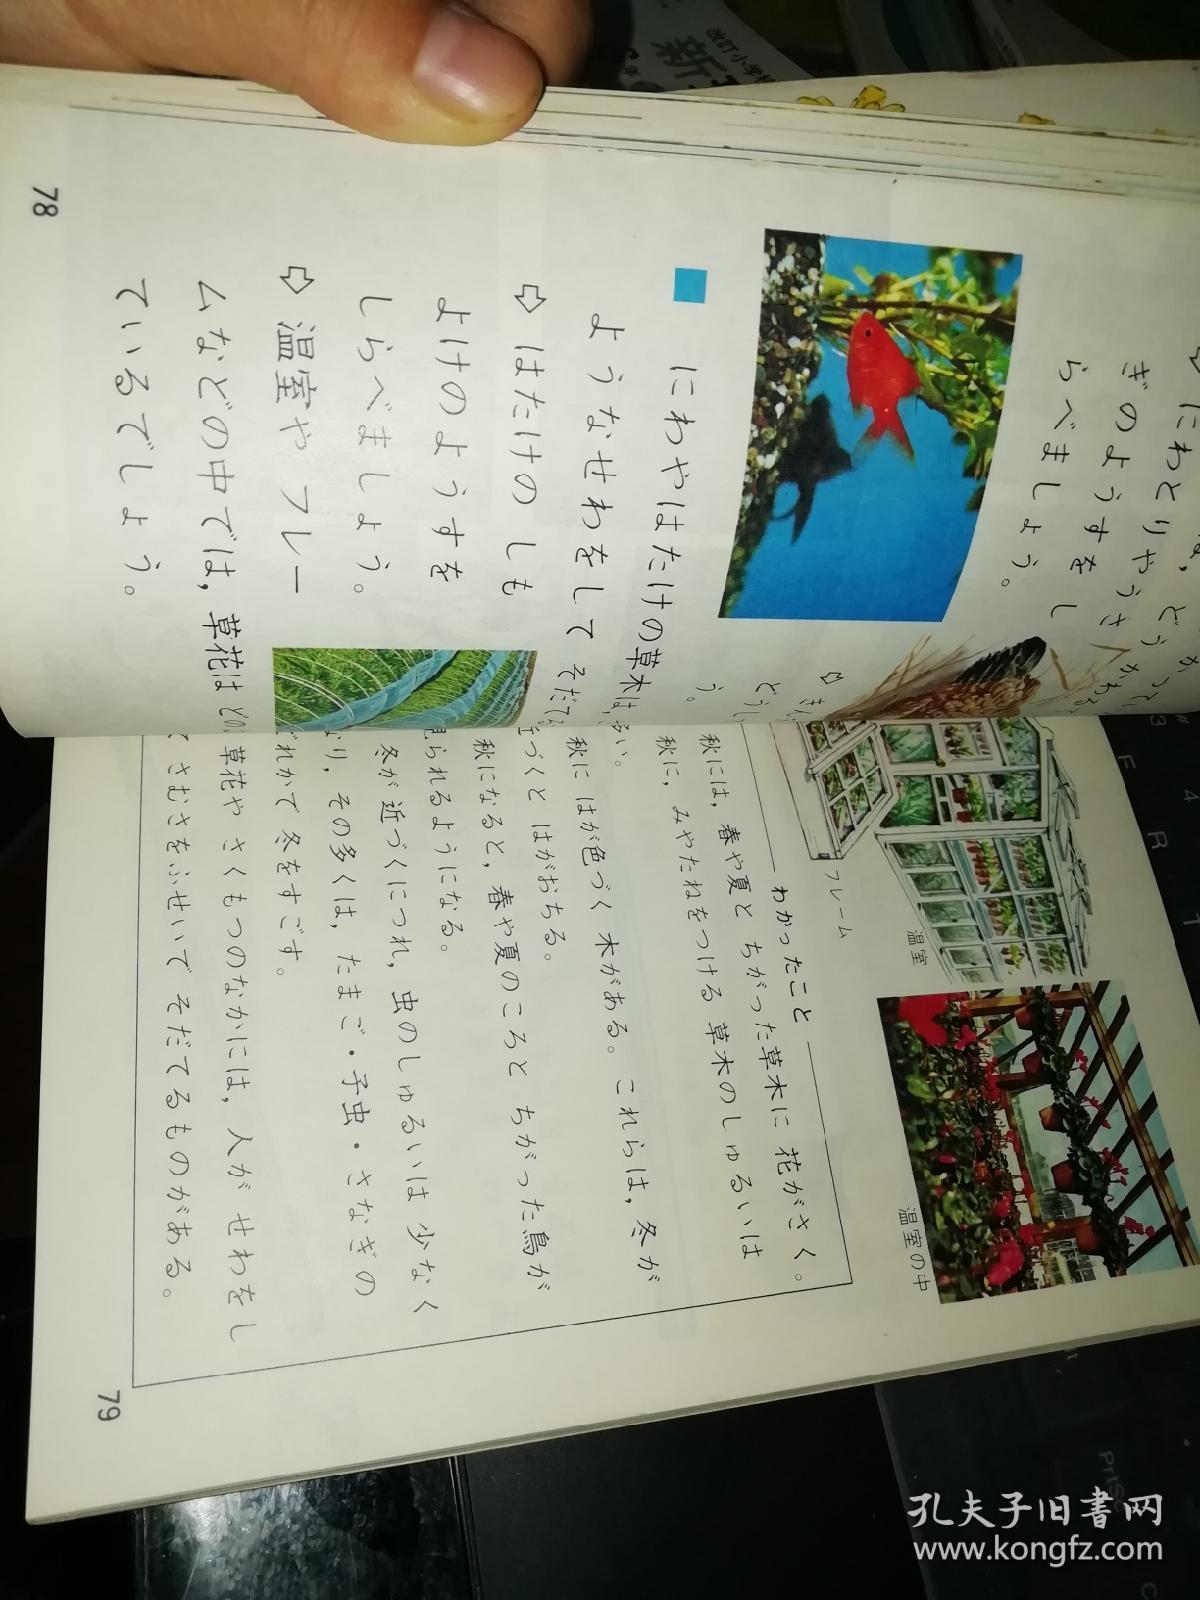 にわとりやうさ
ぎのようすをし
らべましょう。
■ にわやはたけの草木は,
ようなせわをして そだて
⇨ はたけの しも
よけのようすを
しらべましょう。
⇨ 温室や フレー
ムなどの中では, 草花は
ているでしょう。
78
フレーム
温室
温室の中
わかったこと
秋には, 春や夏と ちがった草木に 花がさく。
秋に, みやたねをつける 草木のしゅるいは
秋に はが色づく 木がある。これらは, 冬が
づくと はがおちる。
秋になると, 春や夏のころと ちがった鳥が
見られるようになる。
冬が 近づくにつれ, 虫のしゅるいは 少なく
なり, その多くは, たまご・子虫・さなぎの
れかで 冬をすごす。
草花や さくもつのなかには, 人が せわをし
て さむさをふせいで そだてるものがある。
79
改訂 小学校
新
F
4
R
孔夫子旧書网
www.kongfz.com